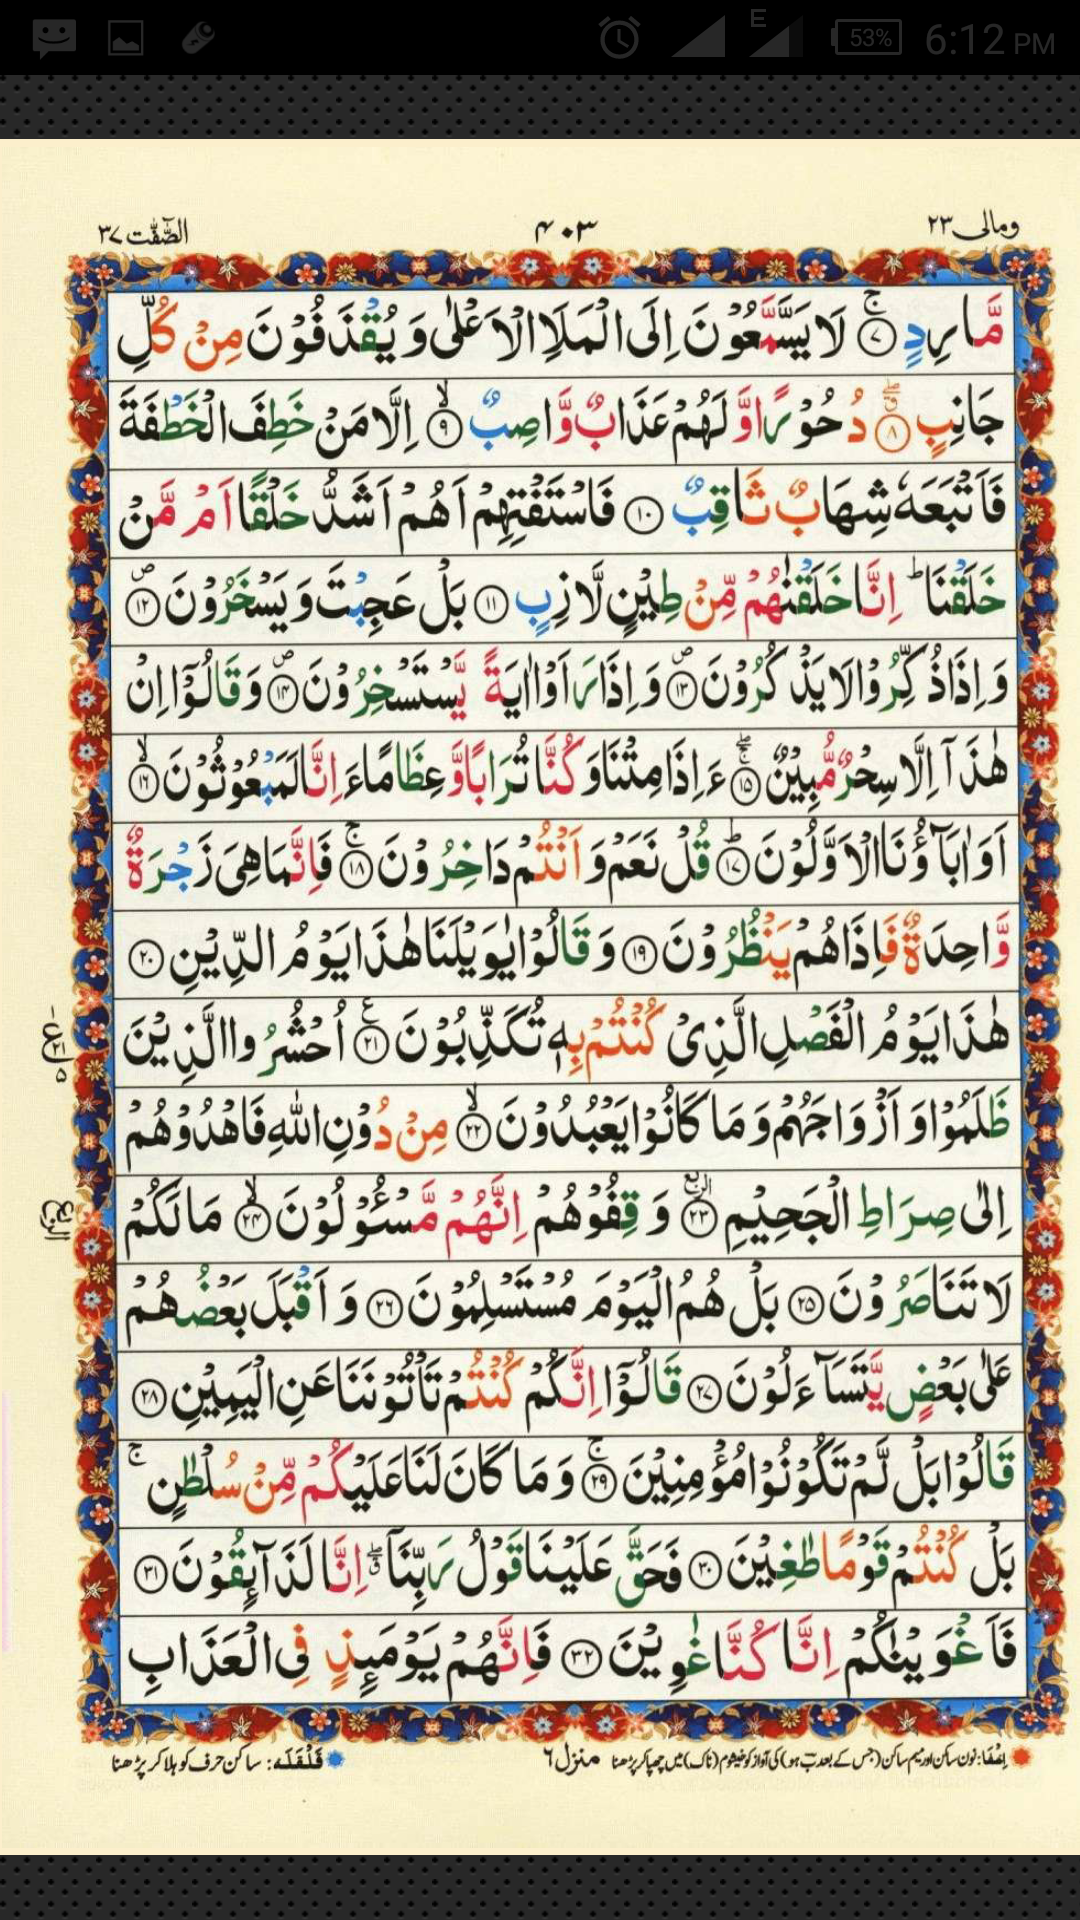 53% 6:12 PM
E
ومالی ٢٣ ٤٠٣ الصّٰٓفّٰت ٣٧
مَّارِدٍ ۚ ﴿٧﴾ لَا يَسَّمَّعُوْنَ اِلَى الْمَلَاِ الْاَعْلٰى وَ يُقْذَفُوْنَ مِنْ كُلِّ
جَانِبٍ ۖۗ ﴿٨﴾ دُحُوْرًا وَّ لَهُمْ عَذَابٌ وَّاصِبٌ ۙ ﴿٩﴾ اِلَّا مَنْ خَطِفَ الْخَطْفَةَ
فَاَتْبَعَهٗ شِهَابٌ ثَاقِبٌ ﴿١٠﴾ فَاسْتَفْتِهِمْ اَهُمْ اَشَدُّ خَلْقًا اَمْ مَّنْ
خَلَقْنَا ؕ اِنَّا خَلَقْنٰهُمْ مِّنْ طِيْنٍ لَّازِبٍ ﴿١١﴾ بَلْ عَجِبْتَ وَ يَسْخَرُوْنَ ۪ ﴿١٢﴾
وَ اِذَا ذُكِّرُوْا لَا يَذْكُرُوْنَ ۪ ﴿١٣﴾ وَ اِذَا رَاَوْا اٰيَةً يَّسْتَسْخِرُوْنَ ۪ ﴿١٤﴾ وَ قَالُوْٓا اِنْ
هٰذَآ اِلَّا سِحْرٌ مُّبِيْنٌ ۚۖ ﴿١٥﴾ ءَاِذَا مِتْنَا وَ كُنَّا تُرَابًا وَّ عِظَامًا ءَاِنَّا لَمَبْعُوْثُوْنَ ۙ ﴿١٦﴾
اَوَ اٰبَآؤُنَا الْاَوَّلُوْنَ ؕ ﴿١٧﴾ قُلْ نَعَمْ وَ اَنْتُمْ دَاخِرُوْنَ ۚ ﴿١٨﴾ فَاِنَّمَا هِيَ زَجْرَةٌ
وَّاحِدَةٌ فَاِذَا هُمْ يَنْظُرُوْنَ ﴿١٩﴾ وَ قَالُوْا يٰوَيْلَنَا هٰذَا يَوْمُ الدِّيْنِ ﴿٢٠﴾
هٰذَا يَوْمُ الْفَصْلِ الَّذِيْ كُنْتُمْ بِهٖ تُكَذِّبُوْنَ ؑ ﴿٢١﴾ اُحْشُرُوا الَّذِيْنَ
ظَلَمُوْا وَ اَزْوَاجَهُمْ وَ مَا كَانُوْا يَعْبُدُوْنَ ۙ ﴿٢٢﴾ مِنْ دُوْنِ اللّٰهِ فَاهْدُوْهُمْ
اِلٰى صِرَاطِ الْجَحِيْمِ الربع ﴿٢٣﴾ وَ قِفُوْهُمْ اِنَّهُمْ مَّسْـُٔوْلُوْنَ ۙ ﴿٢٤﴾ مَا لَكُمْ
لَا تَنَاصَرُوْنَ ﴿٢٥﴾ بَلْ هُمُ الْيَوْمَ مُسْتَسْلِمُوْنَ ﴿٢٦﴾ وَ اَقْبَلَ بَعْضُهُمْ
عَلٰى بَعْضٍ يَّتَسَآءَلُوْنَ ﴿٢٧﴾ قَالُوْٓا اِنَّكُمْ كُنْتُمْ تَاْتُوْنَنَا عَنِ الْيَمِيْنِ ﴿٢٨﴾
قَالُوْا بَلْ لَّمْ تَكُوْنُوْا مُؤْمِنِيْنَ ۚ ﴿٢٩﴾ وَ مَا كَانَ لَنَا عَلَيْكُمْ مِّنْ سُلْطٰنٍ ۚ
بَلْ كُنْتُمْ قَوْمًا طٰغِيْنَ ﴿٣٠﴾ فَحَقَّ عَلَيْنَا قَوْلُ رَبِّنَآ ۖۗ اِنَّا لَذَآىِٕقُوْنَ ﴿٣١﴾
فَاَغْوَيْنٰكُمْ اِنَّا كُنَّا غٰوِيْنَ ﴿٣٢﴾ فَاِنَّهُمْ يَوْمَىِٕذٍ فِي الْعَذَابِ
ع ٥
الربع
اِخفَا: نون ساکن اور میم ساکن (جس کے بعد ب ہو) کی آواز کو خیشوم (ناک) میں چھپا کر پڑھنا منزل ٦ قَلْقَلَه: ساکن حرف کو ہلا کر پڑھنا